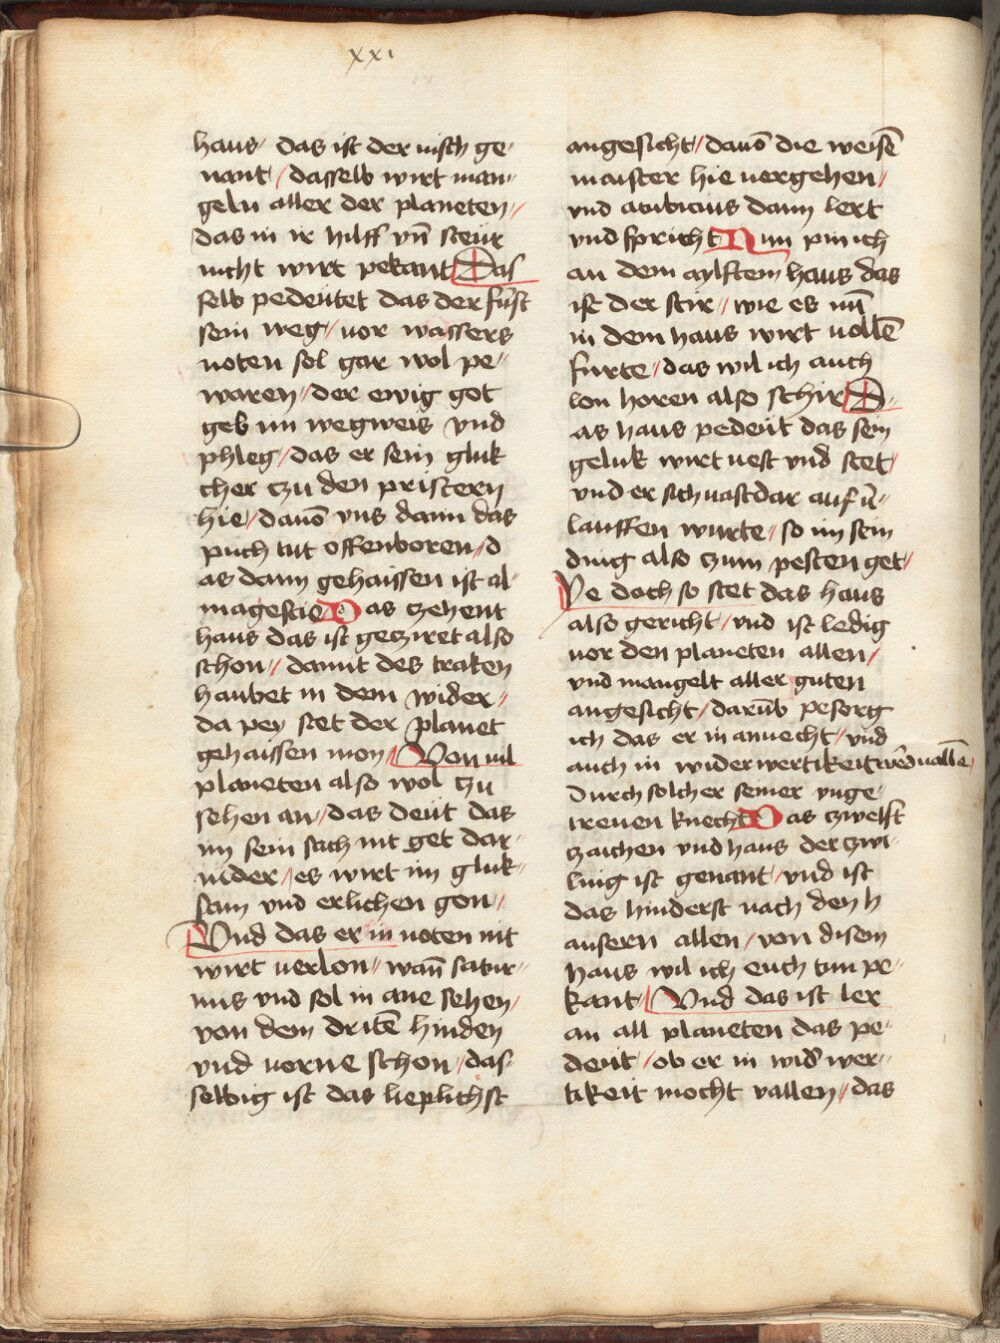 xxi
haus / das ist der visch ge-
nant / dasselb wirt man-
geln aller der planeten //
das in ir hilff vn̄ steur
nicht wirt pekant Das
selb pedeutet das der furst
sein weg / vor wassers
noten sol gar wol pe-
waren / der ewig got
geb im wegweis vnd
phleg / das er sein gluk
cher czu den pristern
hie / dauō vns dann das
puch tut offenboren // d
as dann gehaissen ist al-
magestie Das czehent
haus das ist gecziret also
schon // damit des traken
haubet in dem wider //
da pey stet der planet
gehaissen mon / Von uil
planeten also wol zu
sehen an / das deut das
im sein sach nit get dar-
nider // es wirt im gluk-
sam vnd erlichen gon /
Vnd das er in noten nit
wirt uerlon // wan̄ satur-
nus vnd sol in ane sehen /
von dem dritē hinden
vnd uorne schon / das-
selbig ist das lieplichst
angesicht // dauō die weisē
maister hie uergehen /
vnd atubicius dann lert
vnd spricht Nun pin ich
an dem aylftem haus das
ist der stir // wie es nū
in dem haus wirt uollē
furte / das wil ich auch
lon horen also schir D-
as haus pedeut das sein
geluk wirt uest vnd stet /
vnd er sich vast dar auf ū-
lauffen wurte / so im sein
ding also czum pesten get /
Ye doch so stet das haus
also gericht / vnd ist ledig
vor den planeten allen /
vnd mangelt aller guten
angesicht / darūb pesorg
ich das er in anuecht / vnd
auch in widerwertikeit uallē /
durch solcher seiner vnge-
treuen knecht Das czwelft
czaichen vnd haus der zwi-
ling ist genant / vnd ist
das hinderst nach den h
ausern allen / von disem
haus wil ich euch tun pe-
kant / Vnd das ist ler
an all planeten das pe-
deut / ob er in wider wer-
tikeit mocht vallen // das